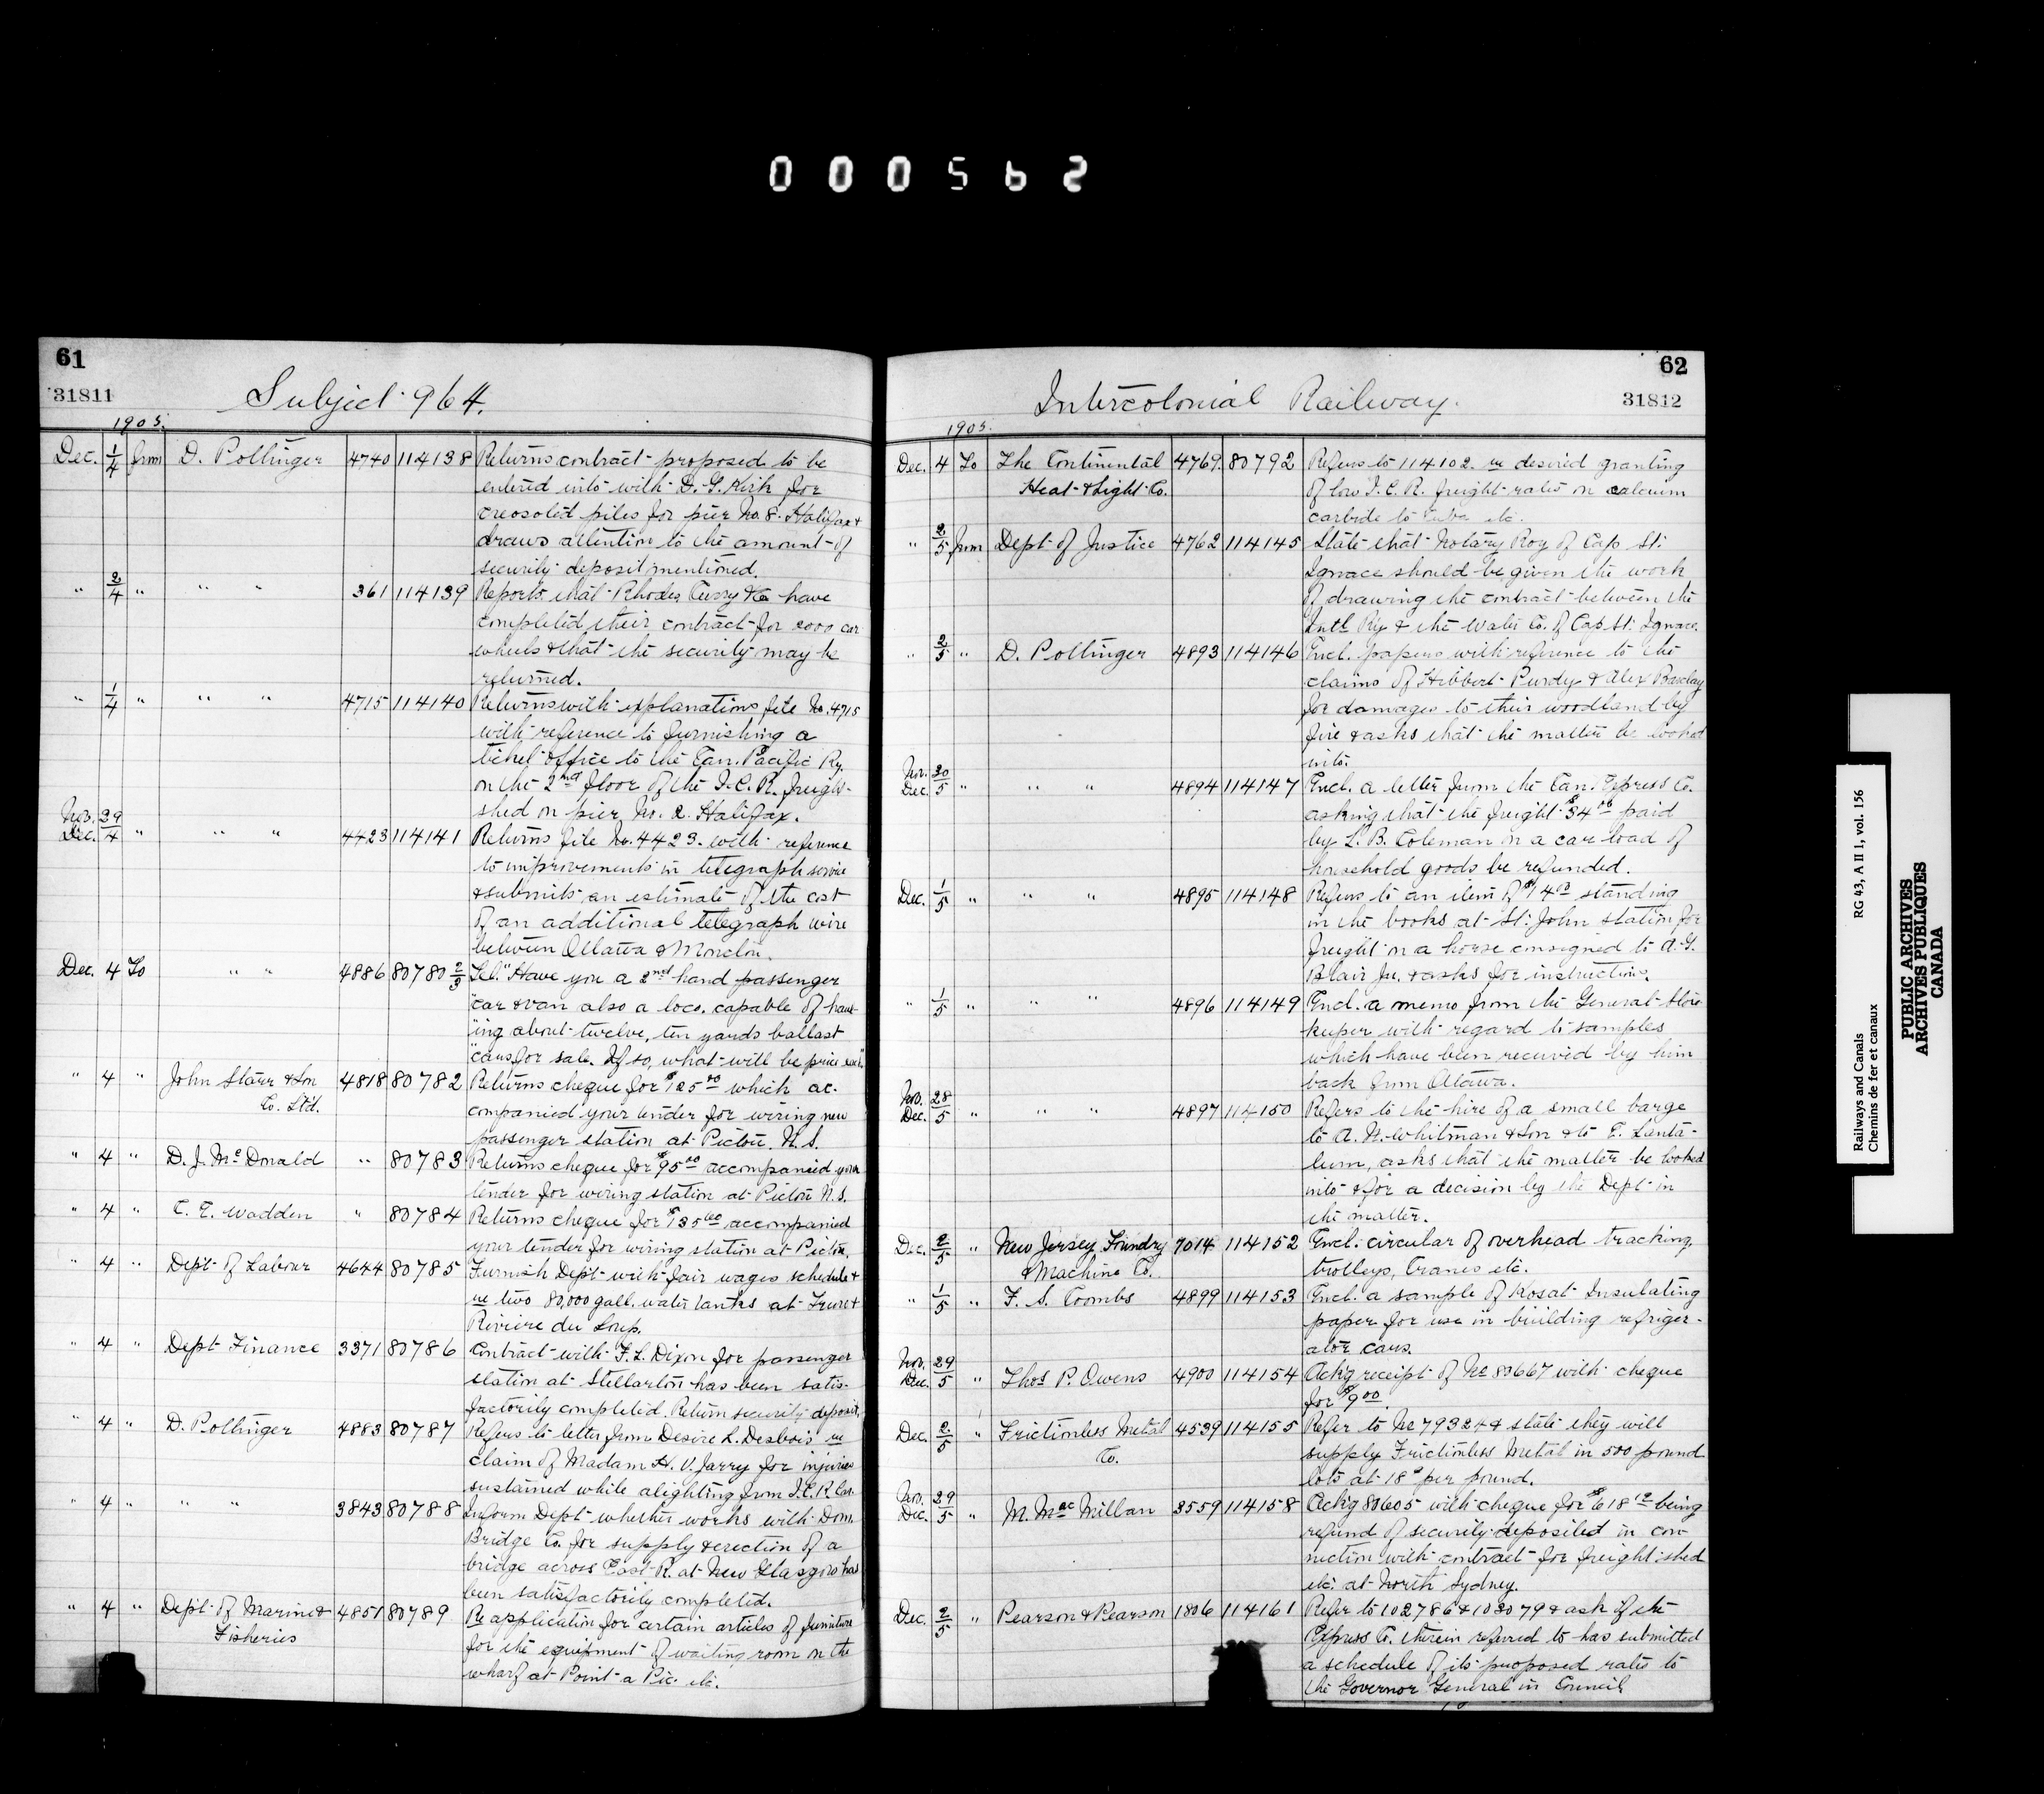 000562
61
31811
Subject 964.
1905.
Dec. 1/4 from D. Pottinger 4740 114138 Returns contract proposed to be
entered into with D. G. Kirk for
creosoted piles for pier No. 8. Halifax &
draws attention to the amount of
security deposit mentioned.
" 2/4 " " " 361 114139 Reports that Rhodes Curry & Co have
completed their contract for 2000 car
wheels & that the security may be
returned.
" 1/4 " " " 4715 114140 Returns with explanations file No. 4715
with reference to furnishing a
ticket office to the Can. Pacific Ry.
on the 2nd floor of the I.C.R. freight
shed on pier No. 2. Halifax.
Nov. 29
Dec. 4 " " " 4423 114141 Returns file No. 4423. with reference
to improvements in telegraph service
& submits an estimate of the cost
of an additional telegraph wire
between Ottawa & Moncton.
Dec. 4 To " " 4886 80780 2/3 Tel. "Have you a 2nd hand passenger
"car & van also a loco. capable of haul-
"ing about twelve, ten yards ballast
"cars, for sale. If so, what will be price each"
" 4 " John Starr & Son 4818 80782 Returns cheque for $125.00 which ac-
Co. Ltd. companied your tender for wiring new
passenger station at Pictou. N.S.
" 4 " D. J. McDonald " 80783 Returns cheque for $95.00 accompanied your
tender for wiring station at Pictou N.S.
" 4 " C. E. Wadden " 80784 Returns cheque for $135.00 accompanied
your tender for wiring station at Pictou.
" 4 " Dept. of Labour 4644 80785 Furnish Dept. with fair wages schedule &
re two 80,000 gall. water tanks at Truro &
Riviere du Loup.
" 4 " Dept Finance 3371 80786 Contract with F. L. Dixon for passenger
station at Stellarton has been satis-
factorily completed. Return security deposit.
" 4 " D. Pottinger 4883 80787 Refers to letter from Desire L. Desbois re
claim of Madam H. V. Jarry for injuries
sustained while alighting from I.C.R. Car.
" 4 " " " 3843 80788 Inform Dept. whether works with Dom.
Bridge Co. for supply & erection of a
bridge across East R. at New Glasgow has
been satisfactorily completed.
" 4 " Dept. of Marine & 4851 80789 Re application for certain articles of furniture
Fisheries for the equipment of waiting room on the
wharf at Point a Pic. etc.
62
31812
Intercolonial Railway.
1905.
Dec. 4 To The Continental 4769. 80792 Refers to 114102. re desired granting
Heat & Light Co. of low I.C.R. freight rates on calcium
carbide to Cuba etc.
" 2/5 from Dept. of Justice 4762 114145 State that Notary Roy of Cap St.
Ignace should be given the work
of drawing the contract between the
Intl. Ry & the Water Co. of Cap St. Ignace.
" 2/5 " D. Pottinger 4893 114146 Encl. papers with reference to the
claims of Hibbert Purdy & Alex Barclay
for damages to their woodland by
fire & asks that the matter be looked
into.
Nov. 30
Dec. 5 " " " 4894 114147 Encl. a letter from the Can. Express Co.
asking that the freight $34.00 paid
by L. B. Coleman on a car load of
household goods be refunded.
Dec. 1/5 " " " 4895 114148 Refers to an item of standing
in the books at St. John station for
freight on a horse consigned to A. G.
Blair Jr. & asks for instructions.
" 1/5 " " " 4896 114149 Encl. a memo from the General Store
keeper with regard to samples
which have been received by him
back from Ottawa.
Nov. 28
Dec. 5 " " " 4897 114150 Refers to the hire of a small barge
to A. N. Whitman & Son & to E. Lanta-
lum, asks that the matter be looked
into & for a decision by the Dept. in
the matter.
Dec. 2/5 " New Jersey Foundry 7014 114152 Encl. circular of overhead tracking,
& Machine Co. trolleys, Cranes etc.
" 1/5 " F. S. Coombs 4899 114153 Encl. a sample of Kosat Insulating
paper for use in building refriger-
ator cars.
Nov. 29
Dec. 5 " Thos P. Owens 4900 114154 Ack'g receipt of No 80667 with cheque
for $9.00.
Dec. 2/5 " Frictionless Metal 4539 114155 Refer to No 79324 & state they will
Co. supply Frictionless Metal in 500 pound
lots at 18c per pound.
Nov. 29
Dec. 5 " M. MacMillan 3559 114158 Ack'g 80605 with cheque for being
refund of security deposited in con-
nection with contract for freight shed
etc. at North Sydney.
Dec. 2/5 " Pearson & Pearson 1806 114161 Refer to 102786 & 103079 & ask if the
Express Co. therein referred to has submitted
a schedule of its proposed rates to
the Governor General in Council
Railways and Canals RG 43, A II 1, vol. 156
Chemins de fer et canaux
PUBLIC ARCHIVES
ARCHIVES PUBLIQUES
CANADA